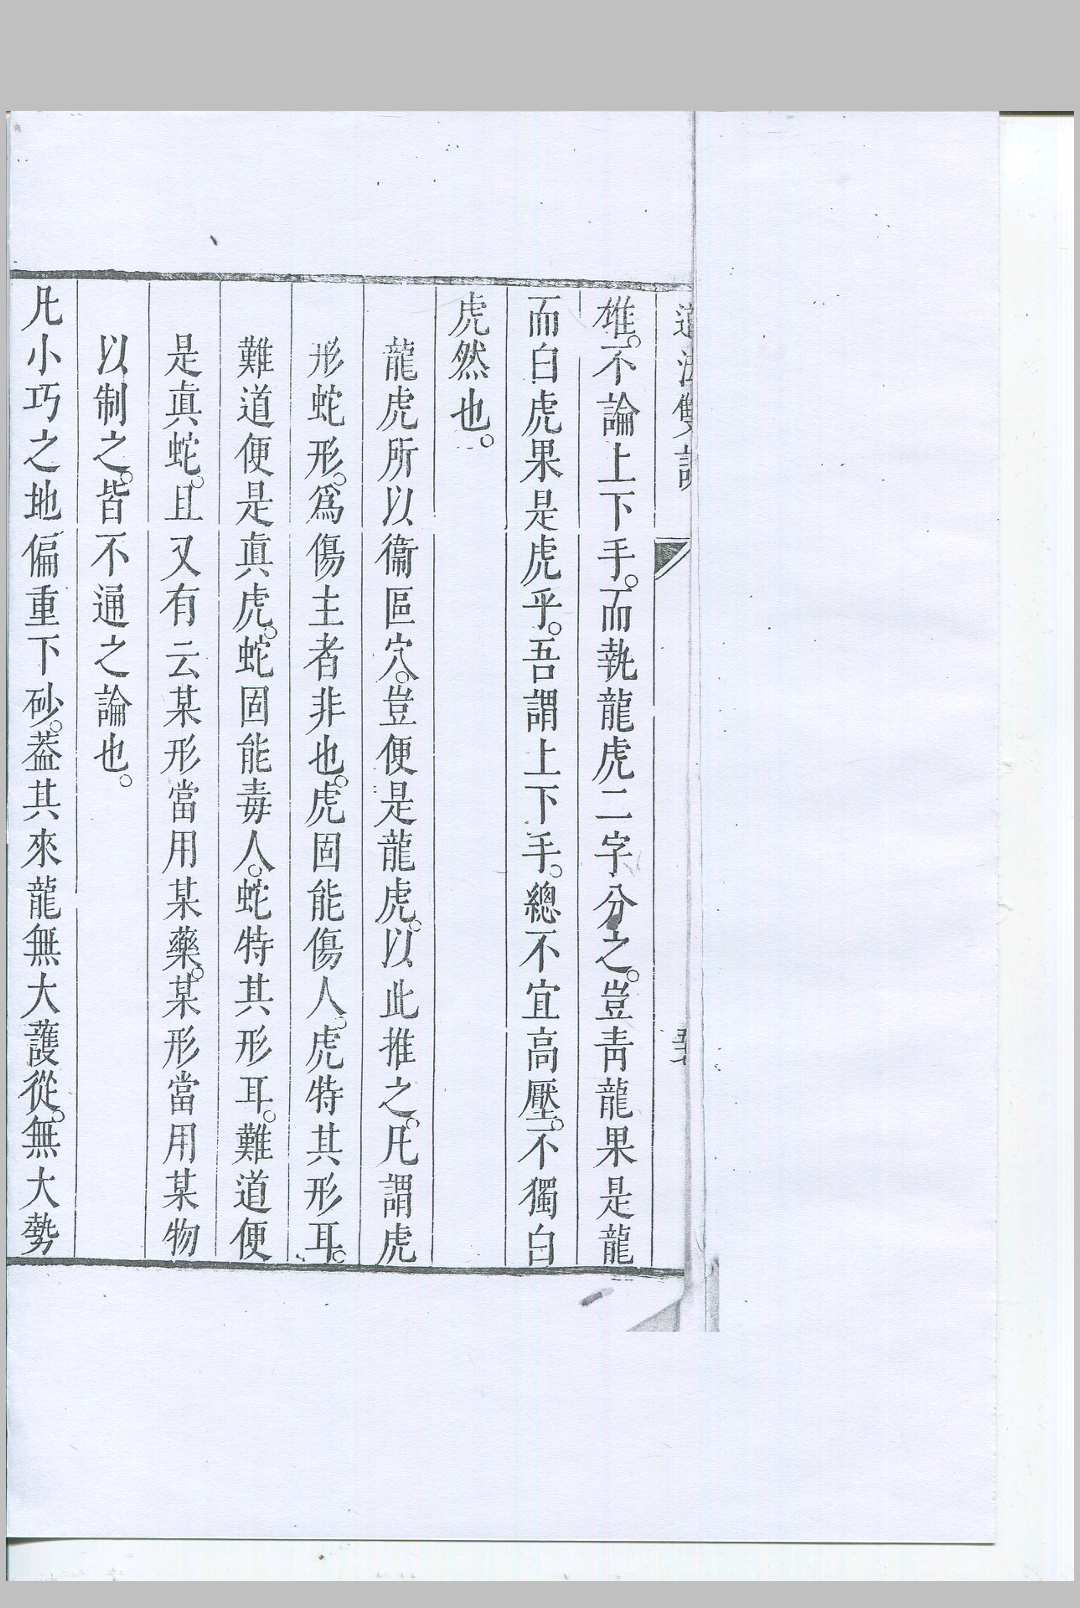 道法雙譚
雄。不論上下手。而執龍虎二字分之。豈青龍果是龍
而白虎果是虎乎。吾謂上下手。總不宜高壓。不獨白
虎然也。
龍虎所以衞區穴。豈便是龍虎。以此推之。凡謂虎
形蛇形。爲傷主者非也。虎固能傷人。虎特其形耳。
難道便是真虎。蛇固能毒人。蛇特其形耳。難道便
是真蛇。且又有云某形當用某藥。某形當用某物
以制之。皆不通之論也。
凡小巧之地偏重下砂。葢其來龍無大護從。無大勢